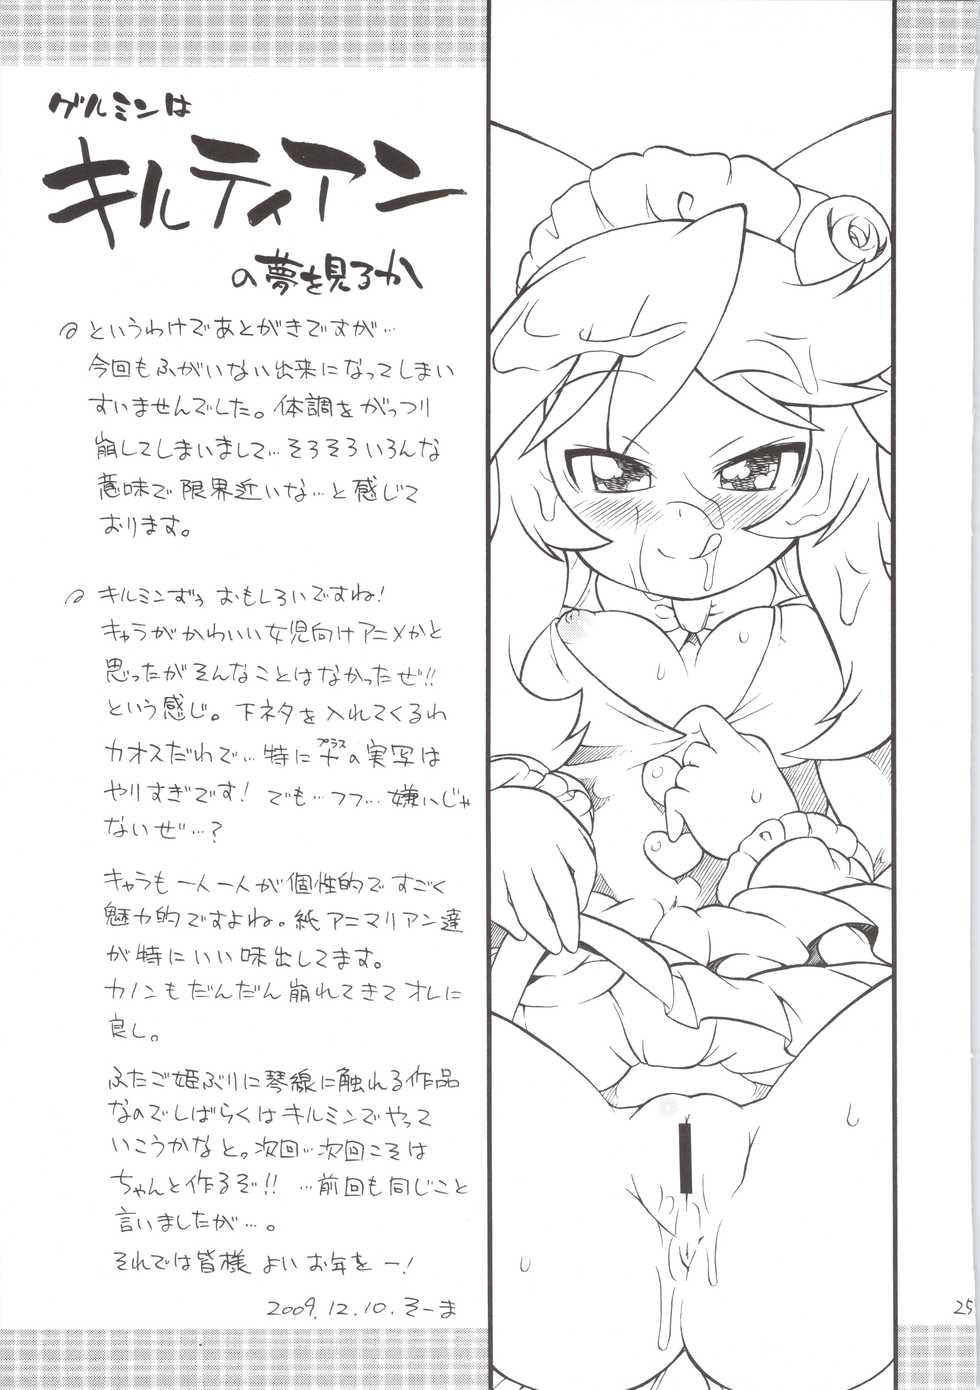 ゲルミンは
キルティアン
の夢を見るか
というわけであとがきですが…
今回もふがいない出来になってしまい
すいませんでした。体調をがっつり
崩してしまいまして…そろそろいろんな
意味で限界近いな…と感じて
おります。
キルミンずぅ おもしろいですね!
キャラがかわいい女児向けアニメかと
思ったがそんなことはなかったぜ!!
という感じ。下ネタを入れてくるわ
カオスだわで…特に十プラスの実写は
やりすぎです! でも…フフ…嫌いじゃ
ないぜ…?
キャラも一人一人が個性的ですごく
魅力的ですよね。紙アニマリアン達
が特にいい味出してます。
カノンもだんだん崩れてきてオレに
良し。
ふたご姫ぶりに琴線に触れる作品
なのでしばらくはキルミンでやって
いこうかなと。次回…次回こそは
ちゃんと作るぞ!! …前回も同じこと
言いましたが…。
それでは皆様 よいお年をー!
2009.12.10.そーま
25